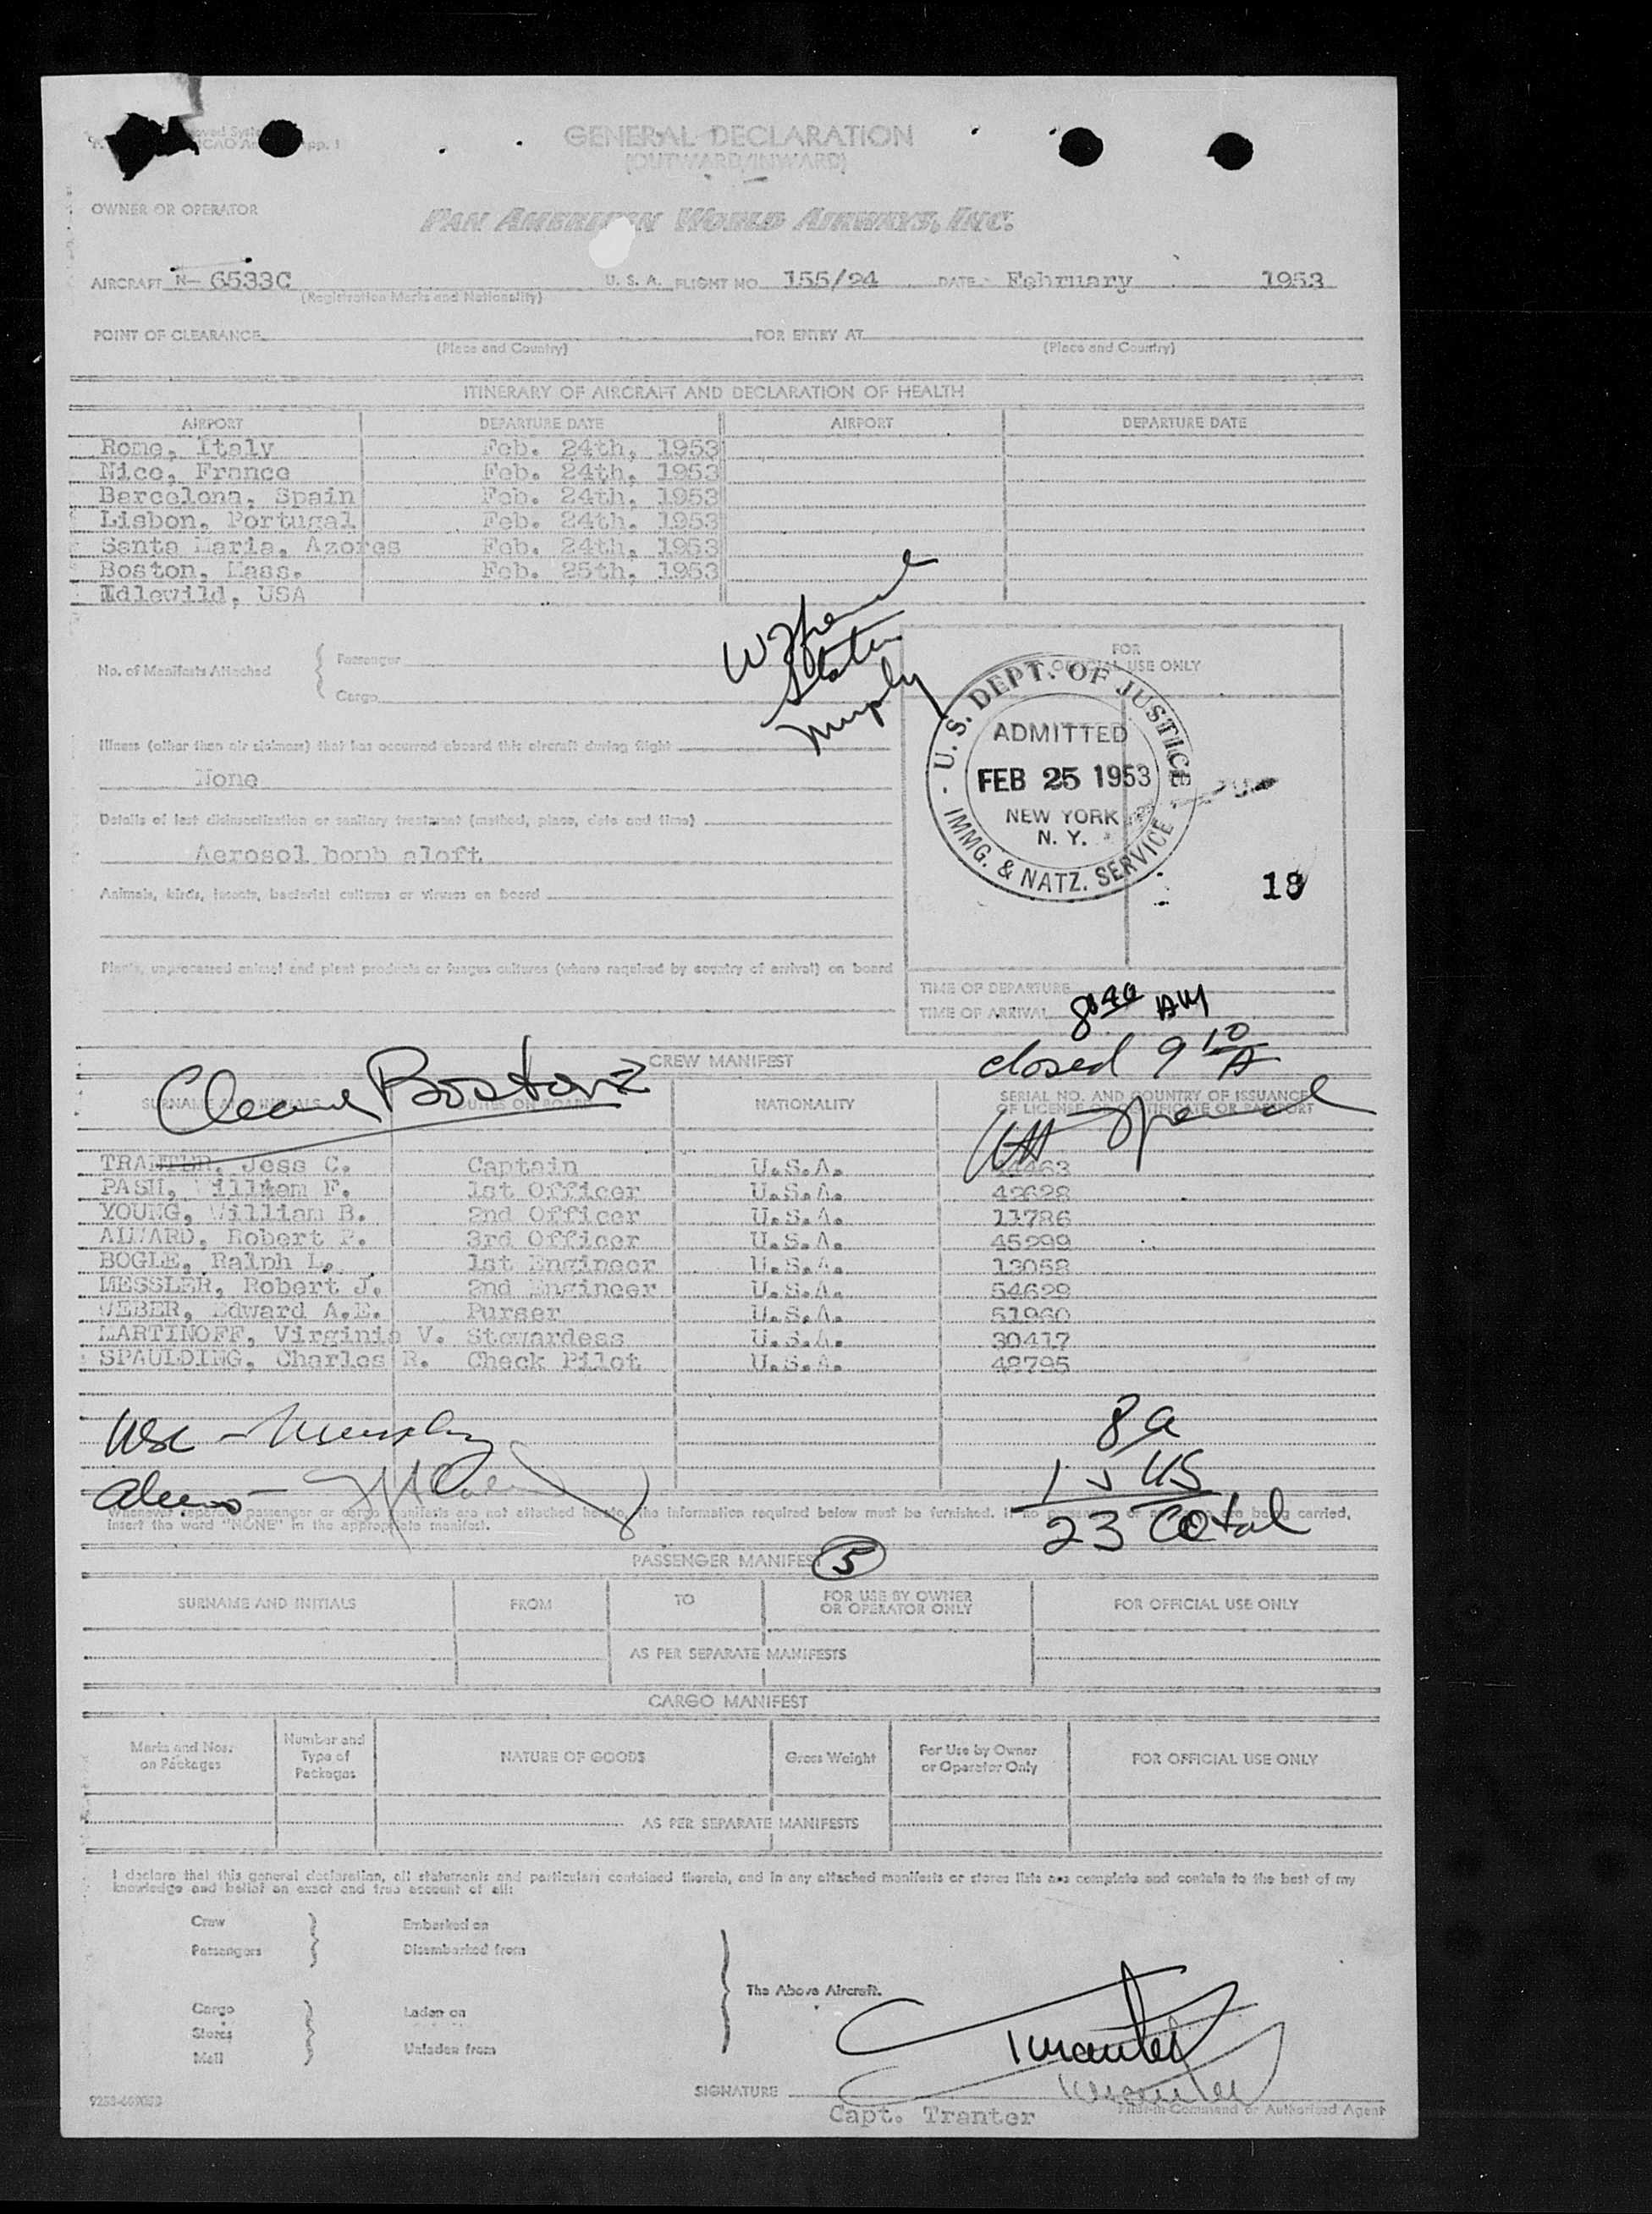 GENERAL DECLARATION
(OUTWARD/INWARD)
OWNER OR OPERATOR
PAN AMERICAN WORLD AIRWAYS, INC.
AIRCRAFT N- 6533C U. S. A. FLIGHT NO. 155/24 DATE February 1953
(Registration Marks and Nationality)
POINT OF CLEARANCE FOR ENTRY AT
(Place and Country) (Place and Country)
ITINERARY OF AIRCRAFT AND DECLARATION OF HEALTH
AIRPORT DEPARTURE DATE AIRPORT DEPARTURE DATE
Rome, Italy Feb. 24th, 1953
Nice, France Feb. 24th, 1953
Barcelona, Spain Feb. 24th, 1953
Lisbon, Portugal Feb. 24th, 1953
Santa Maria, Azores Feb. 24th, 1953
Boston, Mass. Feb. 25th, 1953
Idlewild, USA
No. of Manifests Attached
Passenger
Cargo
Murphy
FOR
OFFICIAL USE ONLY
U.S. DEPT. OF JUSTICE
ADMITTED
FEB 25 1953
NEW YORK
N. Y.
IMMG. & NATZ. SERVICE
18
Illness (other than air sickness) that has occurred aboard this aircraft during flight
None
Details of last disinsectization or sanitary treatment (method, place, date and time)
Aerosol bomb aloft
Animals, birds, insects, bacterial cultures or viruses on board
Plants, unprocessed animal and plant products or fungus cultures (where required by country of arrival) on board
TIME OF DEPARTURE
TIME OF ARRIVAL 8:40 AM
closed 9 10 A
CREW MANIFEST
Boston
SURNAME AND INITIALS DUTIES ON BOARD NATIONALITY SERIAL NO. AND COUNTRY OF ISSUANCE
OF LICENSE OR CERTIFICATE OR PASSPORT
TRANTER, Jess C. Captain U.S.A.
PASH, William F. 1st Officer U.S.A. 42628
YOUNG, William B. 2nd Officer U.S.A. 11786
ALWARD, Robert P. 3rd Officer U.S.A. 45299
BOGLE, Ralph L. 1st Engineer U.S.A. 13058
MESSLER, Robert J. 2nd Engineer U.S.A. 54629
WEBER, Edward A.E. Purser U.S.A. 51960
MARTINOFF, Virginia V. Stewardess U.S.A. 30417
SPAULDING, Charles R. Check Pilot U.S.A. 48795
Murphy
8 a
15 US
23 total
Whenever separate passenger or cargo manifests are not attached hereto, the information required below must be furnished. If no passengers or no cargo are being carried,
insert the word "NONE" in the appropriate manifest.
PASSENGER MANIFEST 5
SURNAME AND INITIALS FROM TO FOR USE BY OWNER
OR OPERATOR ONLY FOR OFFICIAL USE ONLY
AS PER SEPARATE MANIFESTS
CARGO MANIFEST
Marks and Nos.
on Packages
Number and
Type of
Packages
NATURE OF GOODS
Gross Weight
For Use by Owner
or Operator Only
FOR OFFICIAL USE ONLY
AS PER SEPARATE MANIFESTS
I declare that this general declaration, all statements and particulars contained therein, and in any attached manifests or stores lists are complete and contain to the best of my
knowledge and belief an exact and true account of all:
Crew Embarked on
Passengers Disembarked from
The Above Aircraft.
Cargo Laden on
Stores
Mail Unladen from
Tranter
SIGNATURE
Capt. Tranter
Pilot-in-Command or Authorized Agent